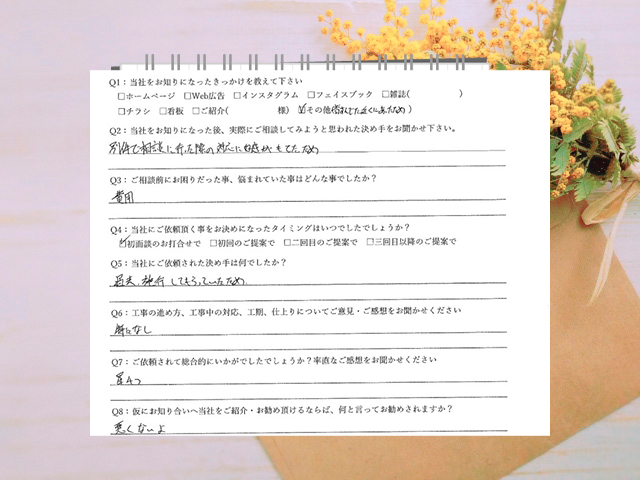 Q1：当社をお知りになったきっかけを教えて下さい
□ホームページ □Web広告 □インスタグラム □フェイスブック □雑誌( )
□チラシ □看板 □ご紹介( 様) ☑その他( 近くにあったため )
Q2：当社をお知りになった後、実際にご相談してみようと思われた決め手をお聞かせ下さい。
別件で相談に行った際の対応に好感がもてたため
Q3：ご相談前にお困りだった事、悩まれていた事はどんな事でしたか？
費用
Q4：当社にご依頼頂く事をお決めになったタイミングはいつでしたでしょうか？
☑初面談のお打合せで □初回のご提案で □二回目のご提案で □三回目以降のご提案で
Q5：当社にご依頼された決め手は何でしたか？
過去、施行してもらっていたため
Q6：工事の進め方、工事中の対応、工期、仕上りについてご意見・ご感想をお聞かせください
特になし
Q7：ご依頼されて総合的にいかがでしたでしょうか？率直なご感想をお聞かせください
星4つ
Q8：仮にお知り合いへ当社をご紹介・お勧め頂けるならば、何と言ってお勧めされますか？
悪くないよ